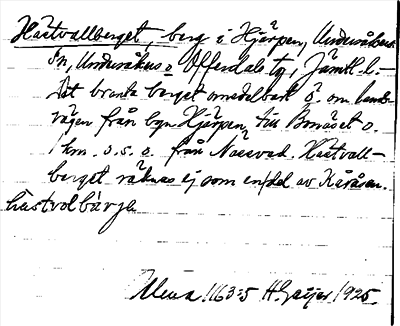 Hästvallberget, berg i Hjärpen, Undersåkers
Sn, Undersåkers o Offerdals tg, Jämtl. l.
Det branta berget omedelbart ö. om lands-
vägen från byn Hjärpen till Bonäset o.
1 km. s.s.ö. från Naesvad. Hästvall-
berget räknas ej som en del av Kåråsen.
hästvolbärje
Ulma 1163:5 H. Geijer 1925.